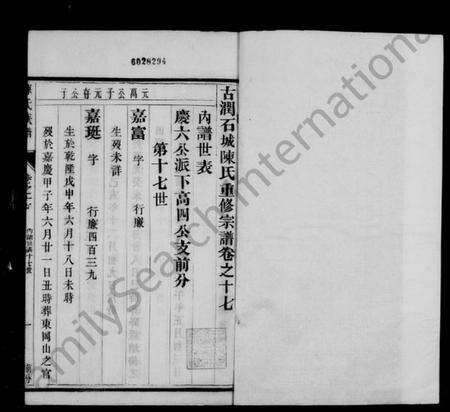 6028294
古潤石城陳氏重修宗譜卷之十七
內譜世表
慶六公派下高四公支前分
第十七世
元萬公子元存公子
嘉富 字 行廉
生歿未詳
嘉珽 字 行廉四百三九
生於乾隆戊申年六月十八日未時
歿於嘉慶甲子年六月廿一日丑時葬東岡山之官
內譜世表十七世
一
前分
FamilySearch International